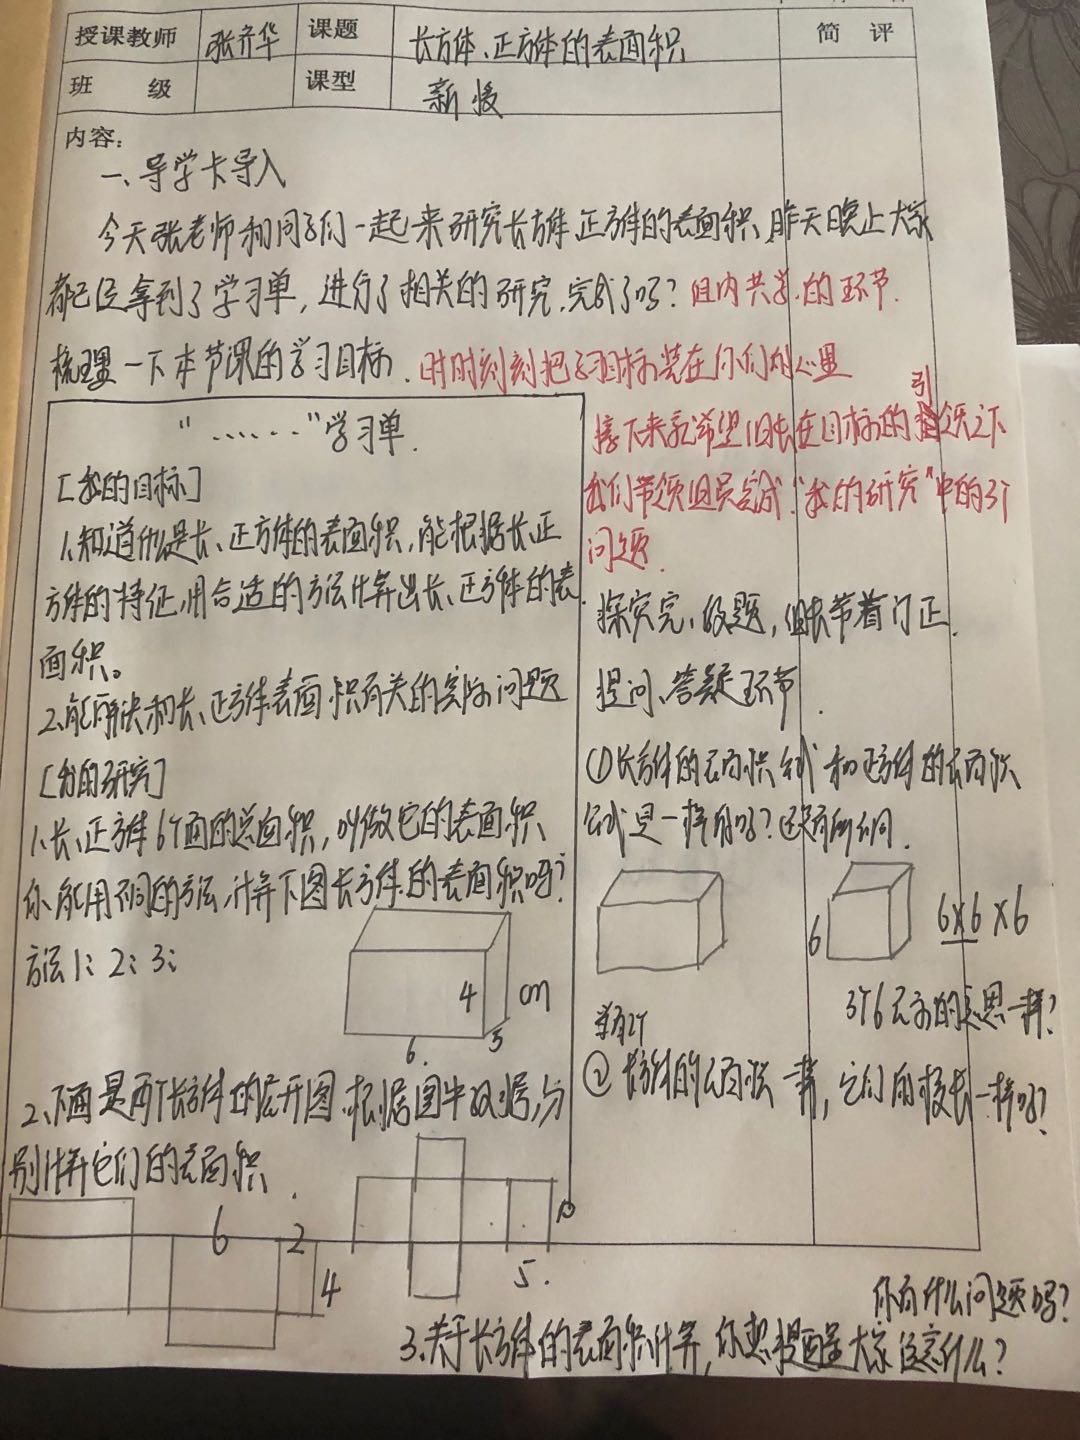 授课教师 张齐华 课题 长方体、正方体的表面积 简 评
班 级 课型 新授
内容：
一、导学卡导入
今天张老师和同学们一起来研究长方体、正方体的表面积，昨天晚上大家
都已经拿到了学习单，进行了相关的研究，完成了吗？组内共学的环节.
梳理一下本节课的学习目标. 时时刻刻把学习目标装在你们的心里
“……”学习单.
[我的目标]
1、知道什么是长、正方体的表面积，能根据长、正
方体的特征，用合适的方法计算出长、正方体的表
面积。
2、能解决和长、正方体表面积有关的实际问题
[我的研究]
1、长、正方体6个面的总面积，叫做它的表面积
你能用不同的方法，计算下图长方体的表面积吗？
方法1：2：3：
4 cm
6. 3
2、下面是两个长方体的展开图，根据图中数据，分
别计算它们的表面积.
6 2
4
10
5.
3、关于长方体的表面积计算，你想提醒大家注意什么？
你有什么问题吗？
接下来就希望组长在目标的引领之下
我们带领组员完成“我的研究”中的3个
问题.
探究完，做题，组长带着订正.
提问、答疑环节.
①长方体的表面积公式和正方体的表面积
公式是一样的吗？还是有所不同.
6 6×6×6
3个6表示的意思一样？
若有2个
②长方体的表面积一样，它们的棱长一样吗？